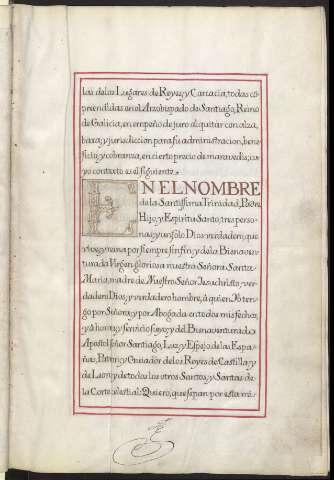 las de los Lugares de Reyes, y Cartacia, todas cō
prendidas en el Arzobispado de Santiago, Reino
de Galicia, en empeño de juro al quitar con alza,
baxa, y jurisdiccion para su administracion, bene-
ficio, y cobranza, en cierto precio de maravedis; cu-
yo contexto es el siguiente.
EN EL NOMBRE
de la Santissima Trinidad, Padre,
Hijo, y Espiritu Santo, tres perso-
nas, y un solo Dios verdadero, que
vive, y reina por siempre sin fin; y de la Bienaven-
turada Virgen gloriosa nuestra Señora Santa
Maria, madre de Nuestro Señor Jesuchristo, ver-
dadero Dios, y verdadero hombre, à quien Yo ten-
go por Señora, y por Abogada en todos mis fechos;
y à honra, y servicio suyo, y del Bienaventurado
Apostol señor Santiago, Luz, y Espejo de las Espa-
ñas, Patron, y Guiador de los Reyes de Castilla, y
de Leon; y de todos los otros Santos, y Santas de
la Corte celestial: Quiero, que sepan por esta mi